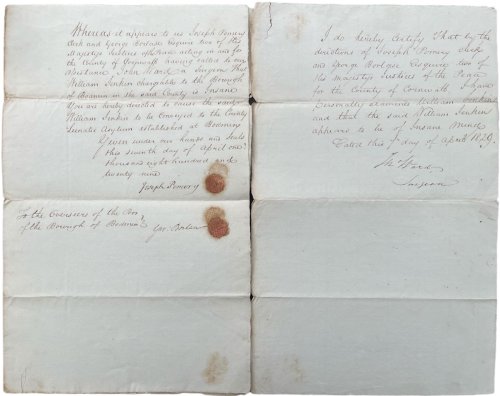 Whereas it appears to us Joseph Pomery
Clerk and George Borlase Esquire two of His
Majestys Justices of the Peace acting in and for
the County of Cornwall having called to our
Assistance John Ward a Surgeon That
William Jenkin chargeable to the Borough
of Bodmin in the said County is Insane
You are hereby directed to cause the said
William Jenkin to be conveyed to the County
Lunatic Asylum established at Bodmin
Given under our hands and Seals
this seventh day of April one
thousand eight hundred and
twenty nine
Joseph Pomery
To the Overseers of the Poor
of the Borough of Bodmin
Geo. Borlase
I do hereby Certify That by the
directions of Joseph Pomery Clerk
and George Borlase Esquire two of
His Majestys Justices of the Peace
for the County of Cornwall I have
personally examined William Jenkin
and that the said William Jenkin
appears to be of Insane Mind
Dated this 7th day of April 1829.
Ward
Surgeon